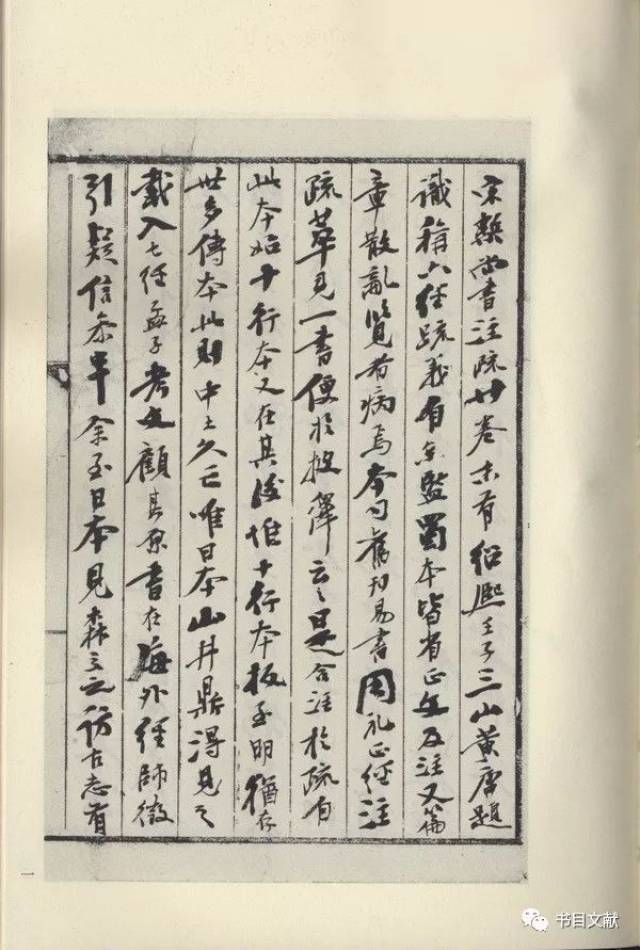 宋槧尚書注疏廿卷末有紹熙壬子三山黃唐題
識稱六經疏義自京監蜀本皆省正文及注又篇
章散亂覽者病焉本司舊刊易書周礼正經注
疏萃見一書便於披繹云々是合注於疏自
此本始十行本又在其後惟十行本板至明猶存
世多傳本此則中土久亡唯日本山井鼎得見之
載入七經孟子考文顧其原書在海外經師徵
引疑信參半余至日本見森立之訪古志有
一
书目文献